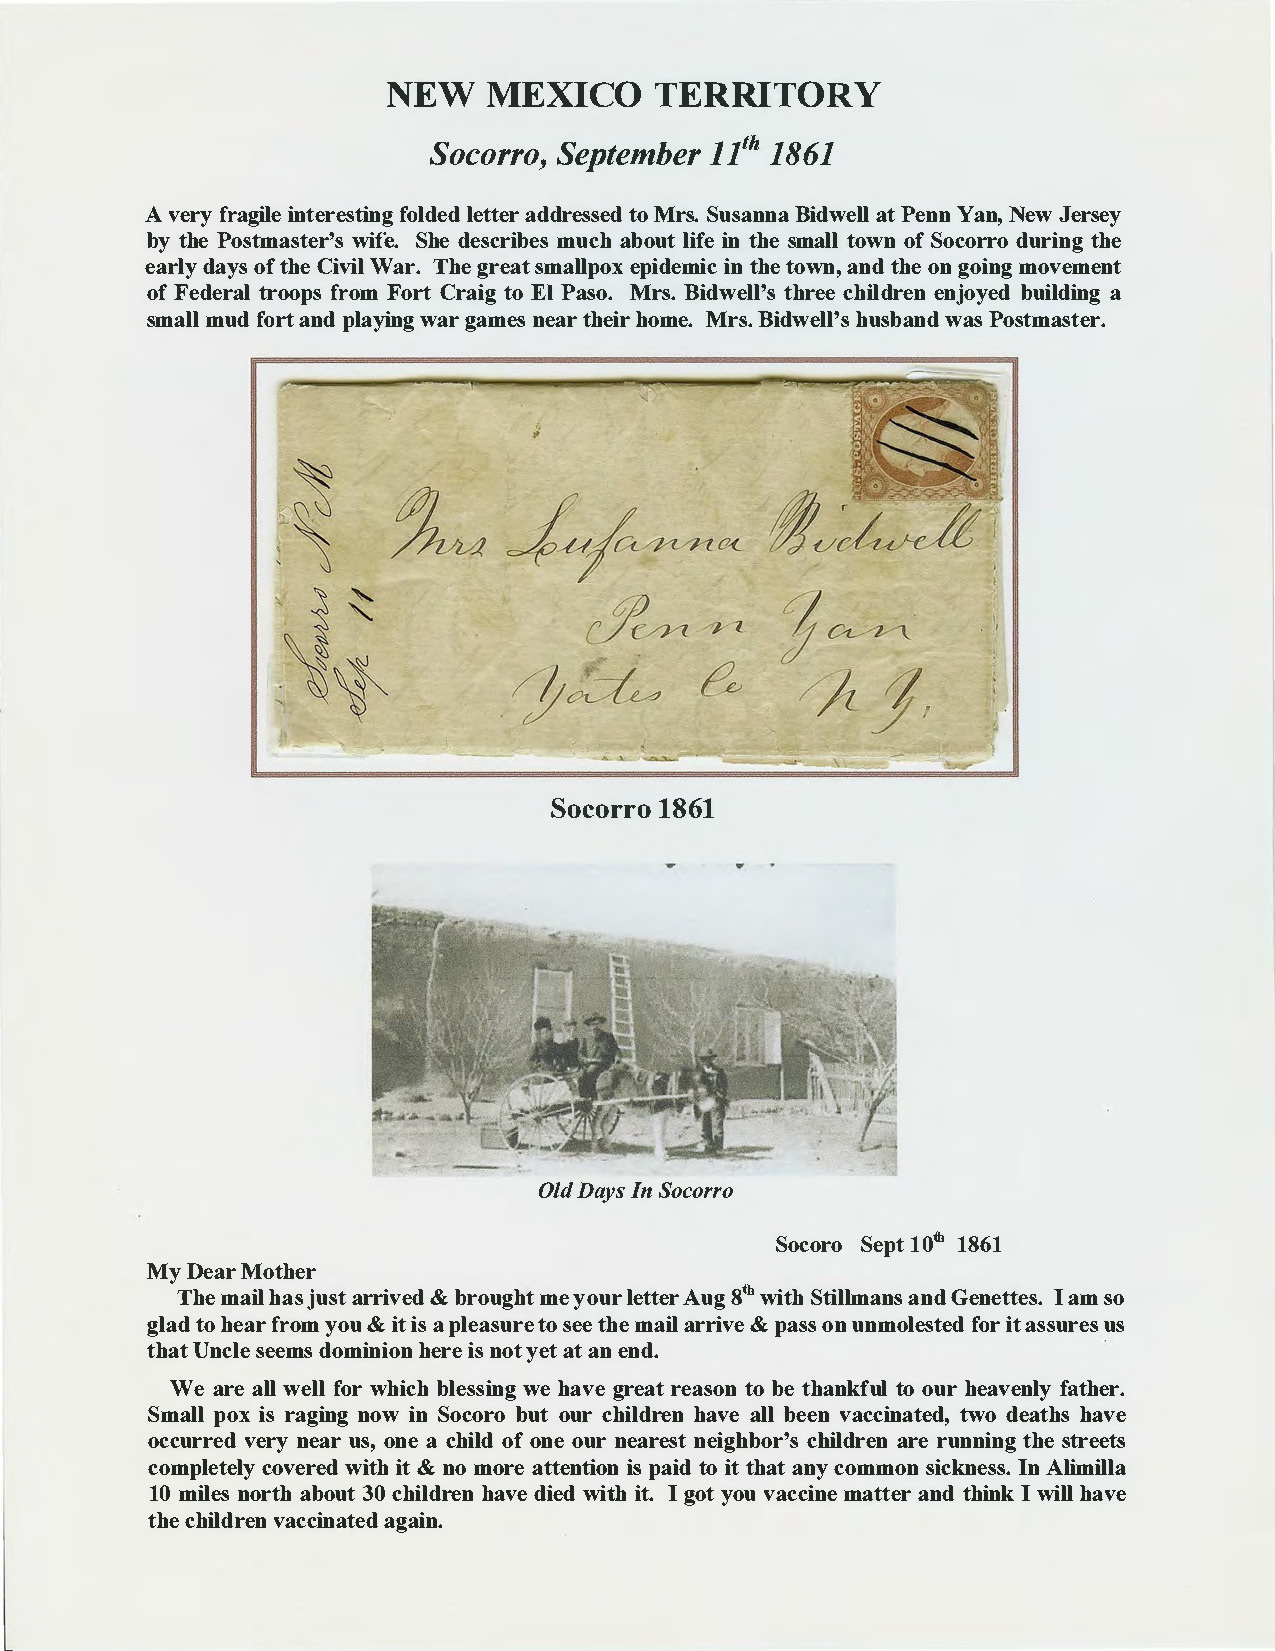 NEW MEXICO TERRITORY
Socorro, September 11th 1861
A very fragile interesting folded letter addressed to Mrs. Susanna Bidwell at Penn Yan, New Jersey
by the Postmaster's wife. She describes much about life in the small town of Socorro during the
early days of the Civil War. The great smallpox epidemic in the town, and the on going movement
of Federal troops from Fort Craig to El Paso. Mrs. Bidwell's three children enjoyed building a
small mud fort and playing war games near their home. Mrs. Bidwell's husband was Postmaster.
Socorro N M
Sep 11
U.S. POSTAGE
Mrs Susanna Bidwell
Penn Yan
Yates Co N Y.
Socorro 1861
Old Days In Socorro
Socoro Sept 10th 1861
My Dear Mother
The mail has just arrived & brought me your letter Aug 8th with Stillmans and Genettes. I am so
glad to hear from you & it is a pleasure to see the mail arrive & pass on unmolested for it assures us
that Uncle seems dominion here is not yet at an end.
We are all well for which blessing we have great reason to be thankful to our heavenly father.
Small pox is raging now in Socoro but our children have all been vaccinated, two deaths have
occurred very near us, one a child of one our nearest neighbor's children are running the streets
completely covered with it & no more attention is paid to it that any common sickness. In Alimilla
10 miles north about 30 children have died with it. I got you vaccine matter and think I will have
the children vaccinated again.